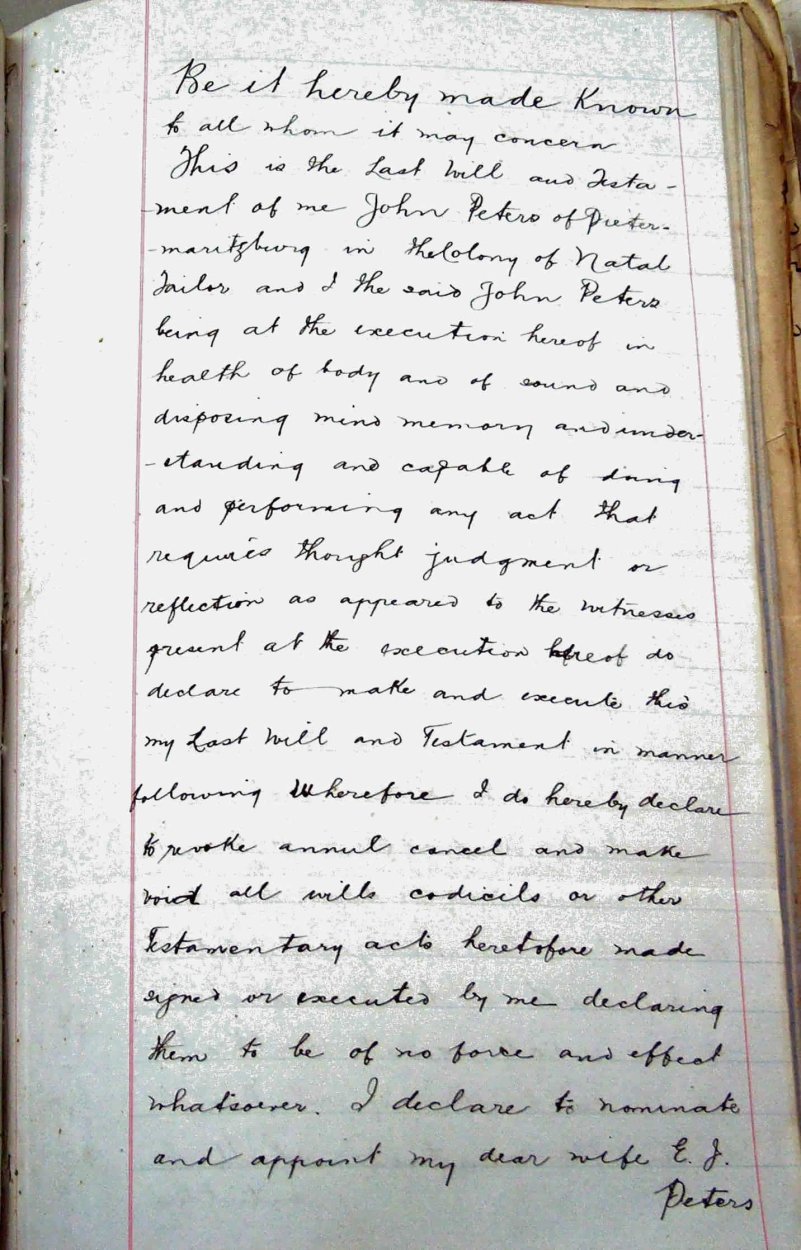 Be it hereby made Known
to all whom it may concern
This is the Last Will and Testa-
-ment of me John Peters of Pieter-
-maritzburg in the Colony of Natal
Tailor and I the said John Peters
being at the execution hereof in
health of body and of sound and
disposing mind memory and under-
-standing and capable of doing
and performing any act that
requires thought judgment or
reflection as appeared to the witnesses
present at the execution hereof do
declare to make and execute this
my Last Will and Testament in manner
following Wherefore I do hereby declare
to revoke annul cancel and make
void all wills codicils or other
Testamentary acts heretofore made
signed or executed by me declaring
them to be of no force and effect
whatsoever. I declare to nominate
and appoint my dear wife E. J.
Peters